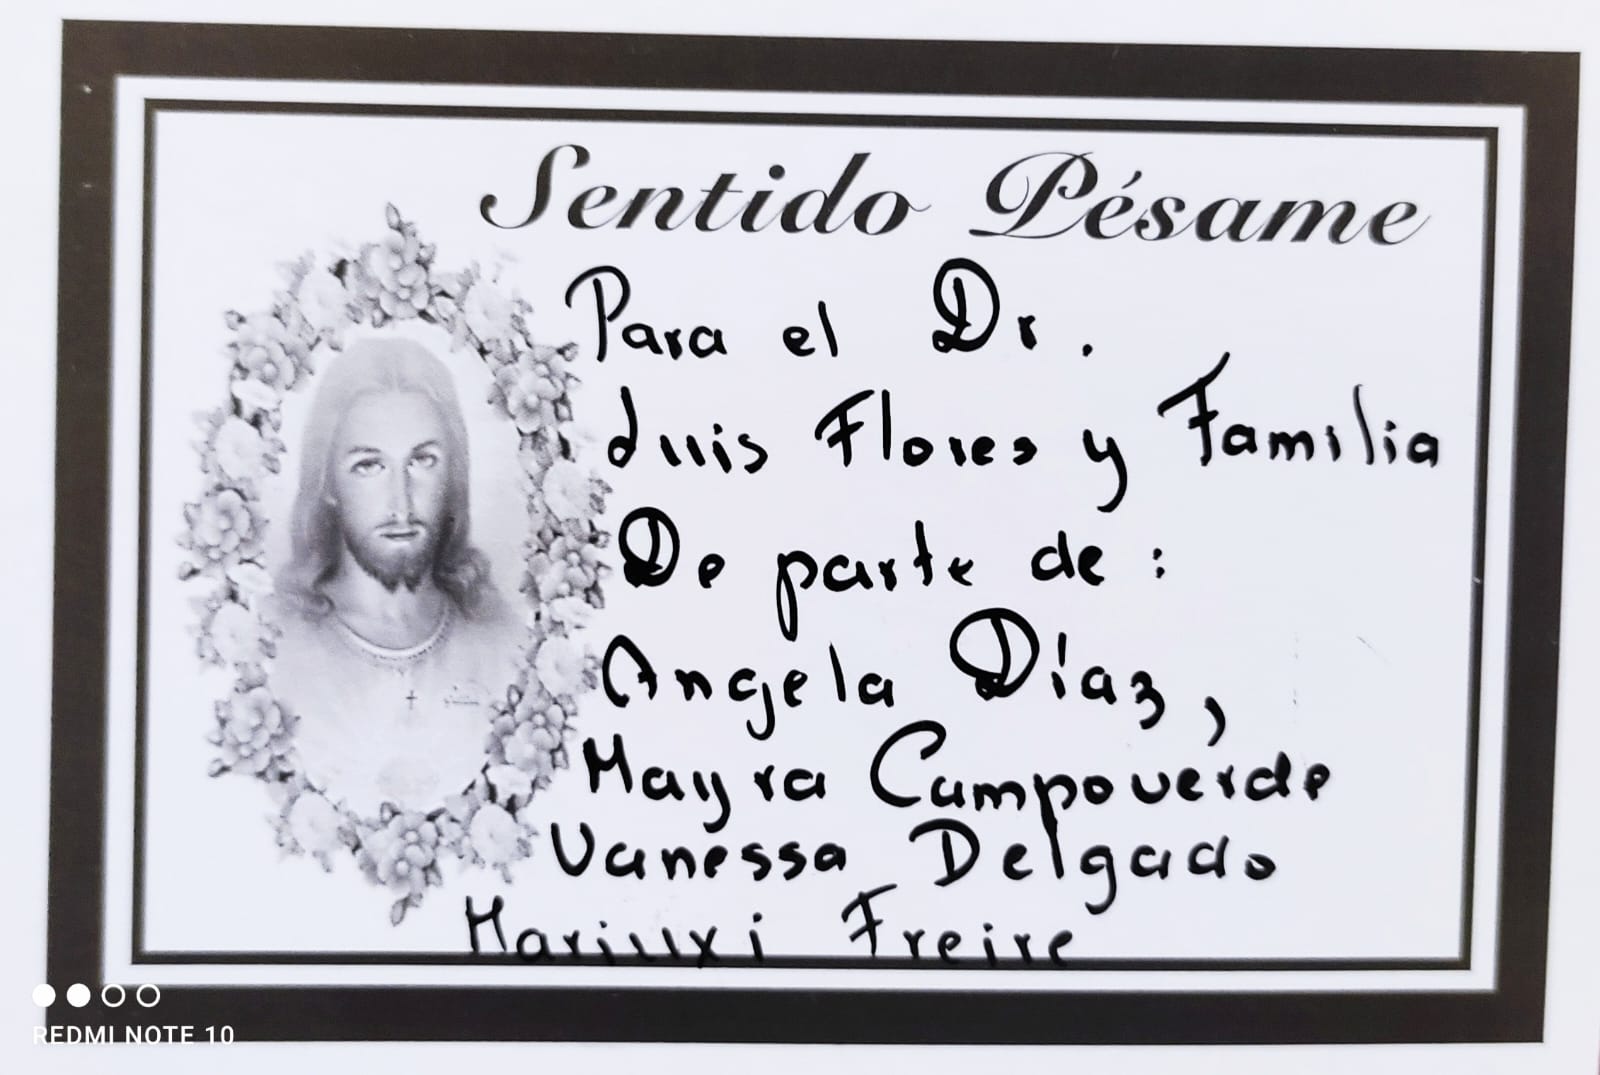 Sentido Pésame
Para el Dr.
Luis Flores y Familia
De parte de :
Angela Díaz,
Mayra Campoverde
Vanessa Delgado
Mariuxi Freire
REDMI NOTE 10